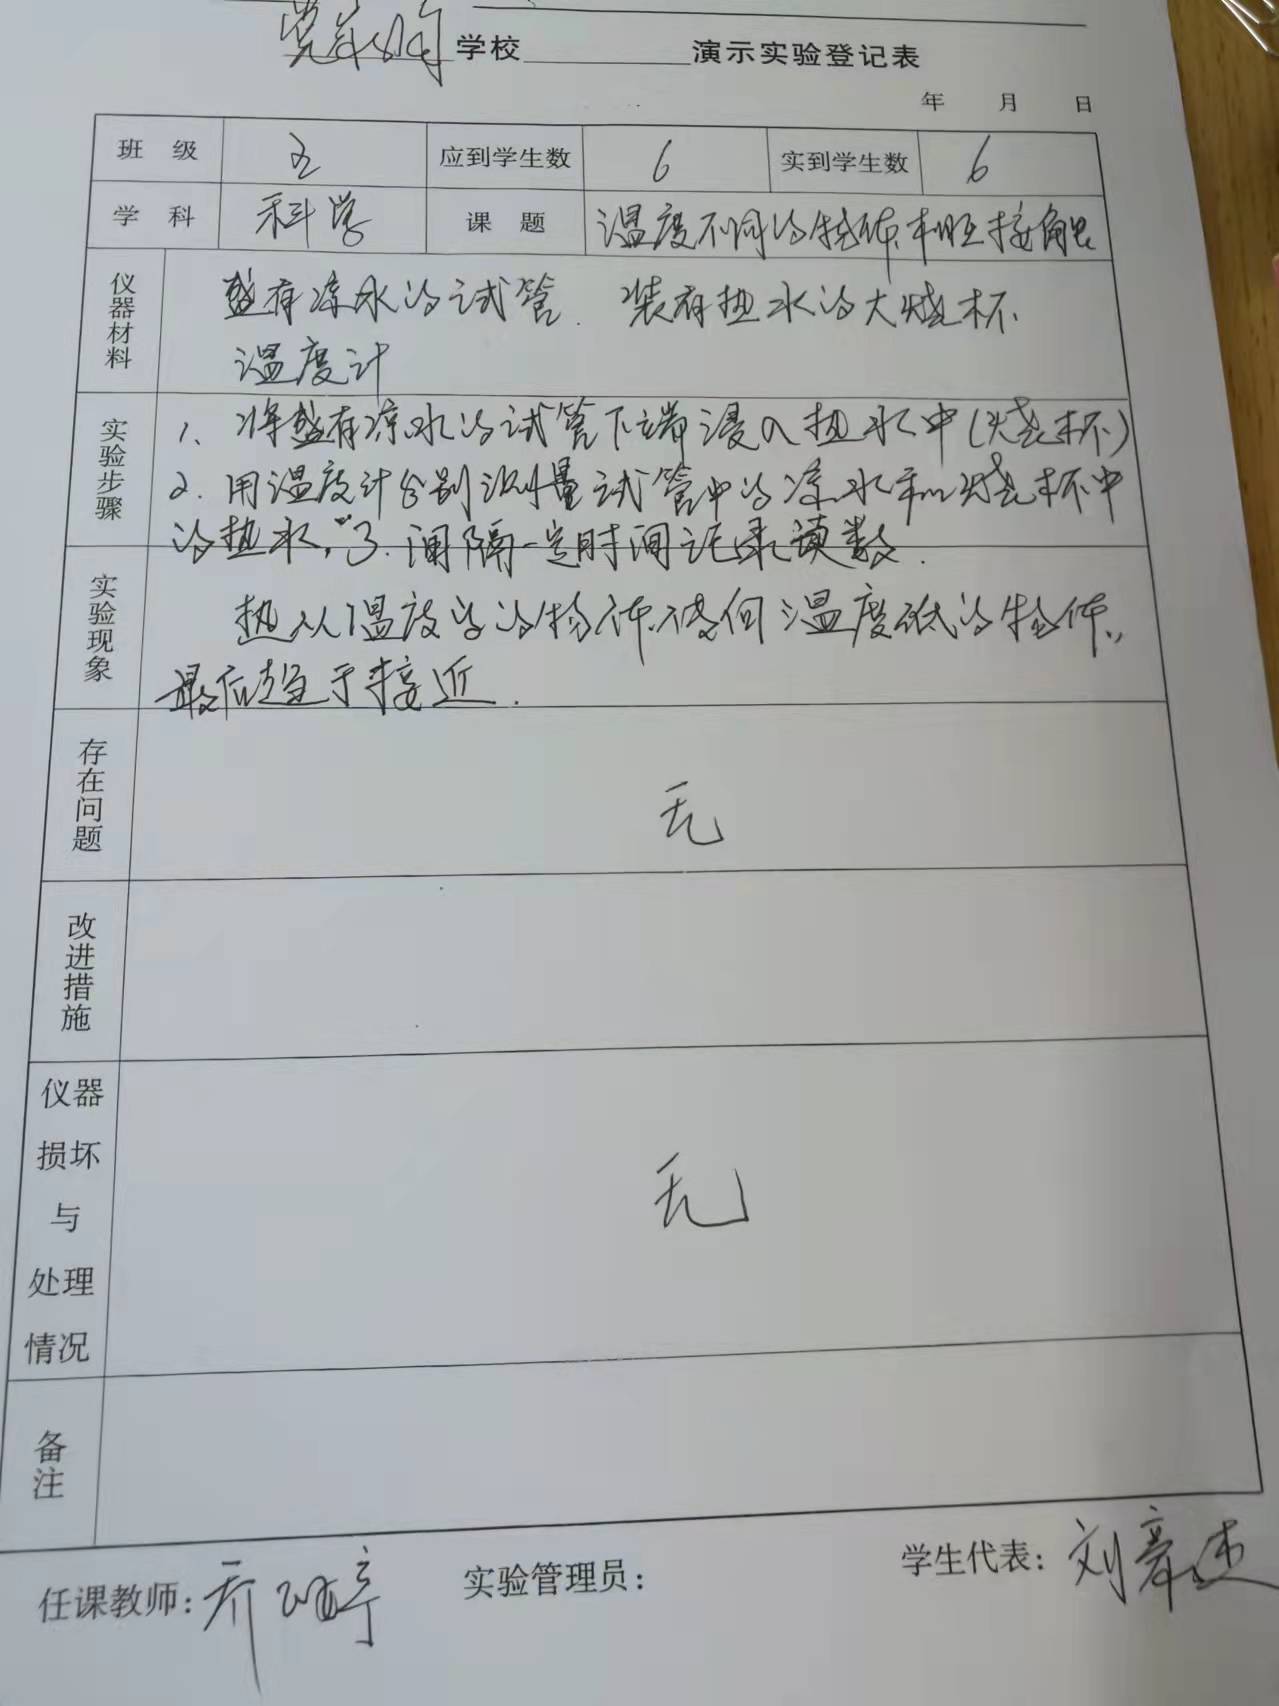 学校 演示实验登记表
年 月 日
班 级 五 应到学生数 6 实到学生数 6
学 科 科学 课 题 温度不同的物体相互接触
仪器材料 盛有凉水的试管. 装有热水的大烧杯
温度计
实验步骤 1、将盛有凉水的试管下端浸入热水中(烧杯)
2.用温度计分别测量试管中的凉水和烧杯中
的热水,"3.间隔一定时间记录读数.
实验现象 热从温度高的物体传向温度低的物体,
最后趋于接近.
存在问题 无
改进措施
仪器损坏与处理情况 无
备注
任课教师: 实验管理员: 学生代表: 刘